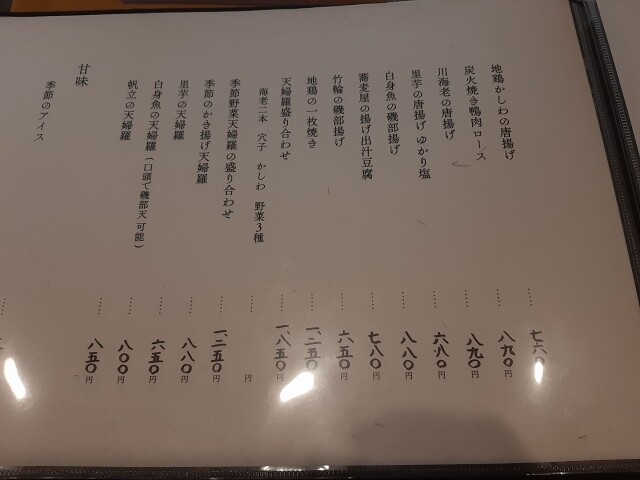 地鶏かしわの唐揚げ …… 七六〇
炭火焼き鴨肉ロース …… 八九〇円
川海老の唐揚げ …… 八九〇円
里芋の唐揚げ ゆかり塩 …… 六八〇円
白身魚の磯部揚げ …… 八八〇円
蕎麦屋の揚げ出汁豆腐 …… 七八〇円
竹輪の磯部揚げ …… 六五〇円
地鶏の一枚焼き …… 一、二五〇円
天婦羅盛り合わせ …… 一、八五〇円
海老二本 穴子 かしわ 野菜3種 …… 円
季節野菜天婦羅の盛り合わせ …… 一、二五〇円
季節のかき揚げ天婦羅 …… 八八〇円
里芋の天婦羅 …… 六五〇円
白身魚の天婦羅(口頭で磯部天可能) …… 八〇〇円
帆立の天婦羅 …… 八五〇円
甘味
季節のアイス ……